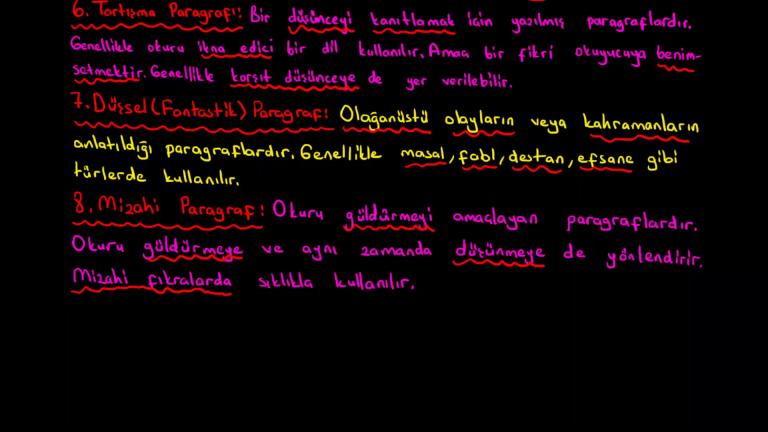 6. Tartışma Paragrafı: Bir düşünceyi kanıtlamak için yazılmış paragraflardır.
Genellikle okuru ikna edici bir dil kullanılır. Amaç bir fikri okuyucuya benim-
setmektir. Genellikle karşıt düşünceye de yer verilebilir.
7. Düşsel (Fantastik) Paragraf: Olağanüstü olayların veya kahramanların
anlatıldığı paragraflardır. Genellikle masal, fabl, destan, efsane gibi
türlerde kullanılır.
8. Mizahi Paragraf: Okuru güldürmeyi amaçlayan paragraflardır.
Okuru güldürmeye ve aynı zamanda düşünmeye de yönlendirir.
Mizahi fıkralarda sıklıkla kullanılır.